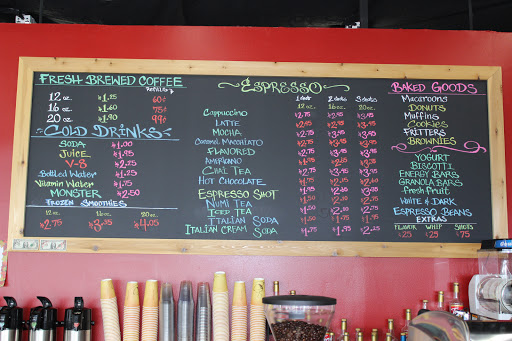 FRESH BREWED COFFEE
Refills
12 oz. $1.25 60¢
16 oz. $1.60 75¢
20 oz. $1.90 99¢
COLD DRINKS
SODA $1.00
JUICE $1.75
V-8 $2.25
Bottled Water $1.25
Vitamin Water $1.75
MONSTER $2.50
FROZEN SMOOTHIES
12 oz. 16 oz. 20 oz.
$2.75 $3.35 $4.05
ESPRESSO
1 shot 2 shots 3 shots
12 oz 16 oz 20 oz
Cappuccino
LATTE
MOCHA
Caramel Macchiato
FLAVORED
AMERICANO
CHAI TEA
HOT CHOCOLATE
ESPRESSO SHOT
NUMI TEA
ICED TEA
ITALIAN SODA
ITALIAN CREAM SODA
BAKED GOODS
Macaroons
DONUTS
Muffins
COOKIES
FRITTERS
BROWNIES
YOGURT
BISCOTTI
ENERGY BARS
GRANOLA BARS
Fresh Fruit
WHITE & DARK
ESPRESSO BEANS
EXTRAS
FLAVOR WHIP SHOTS
$25 $25 $75